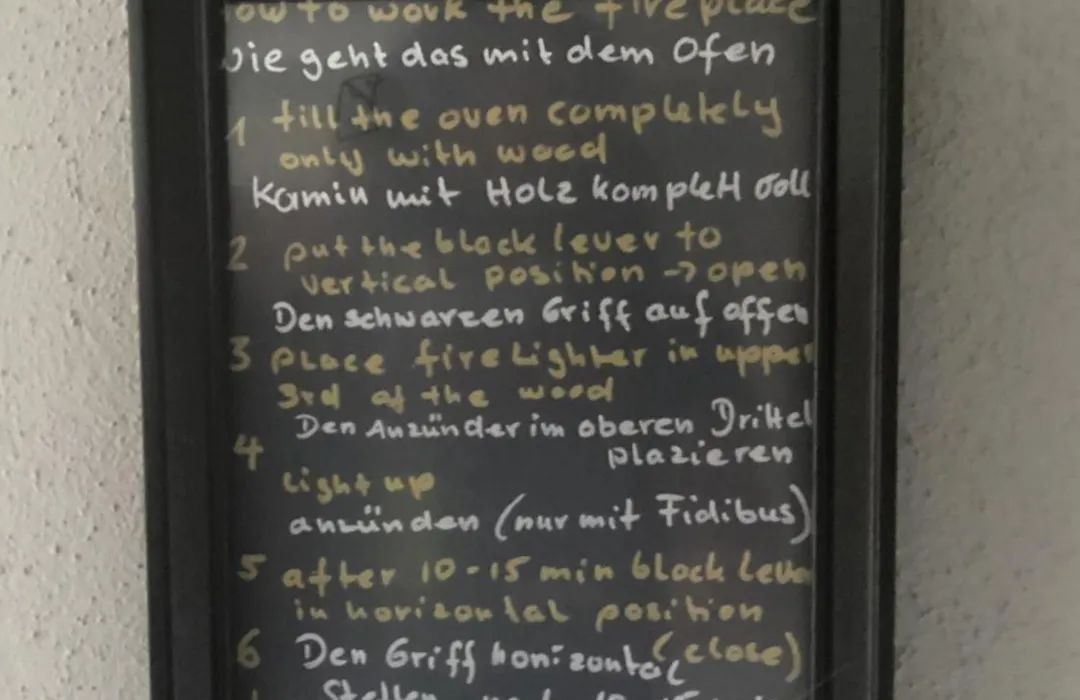 how to work the fireplace
Wie geht das mit dem Ofen
1 fill the oven completely
only with wood
Kamin mit Holz komplett voll
2 put the black lever to
vertical position → open
Den schwarzen Griff auf offen
3 place firelighter in upper
3rd of the wood
Den Anzünder im oberen Drittel
plazieren
4
Light up
anzünden (nur mit Fidibus)
5 after 10-15 min black leve
in horizontal position
6 Den Griff horizontal (close)
Stellen